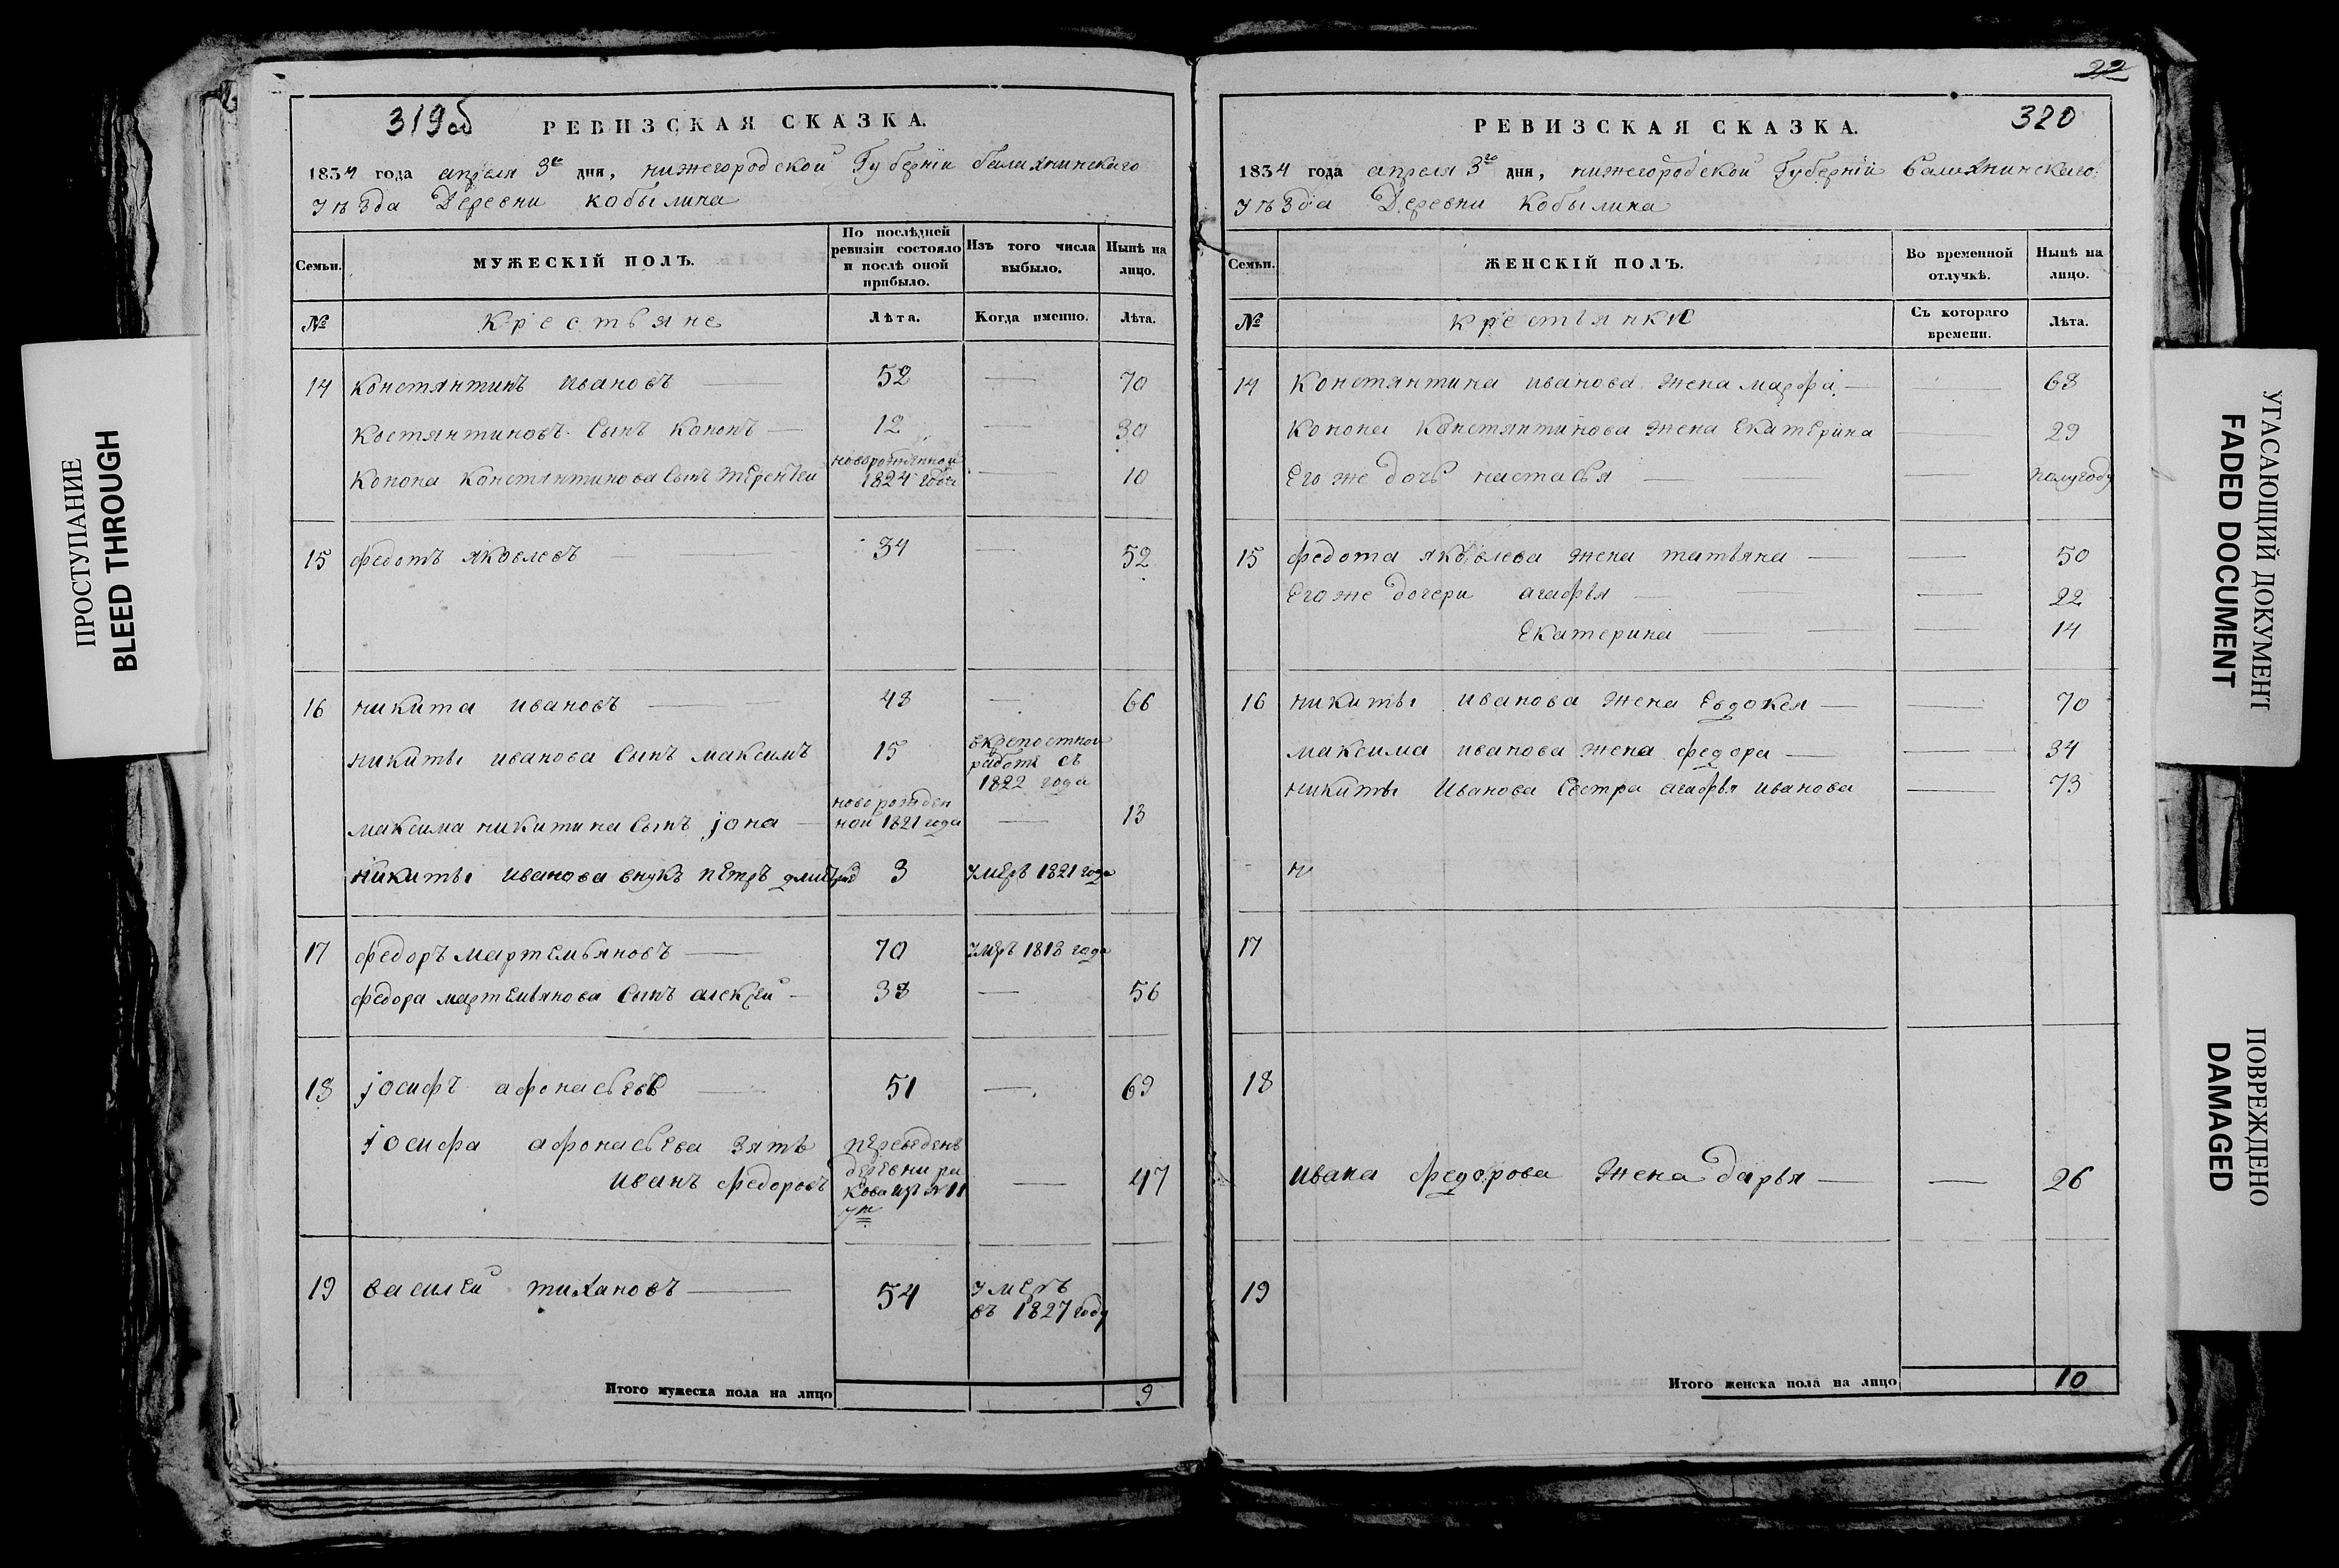 ПРОСТУПАНИЕ
BLEED THROUGH
319об
РЕВИЗСКАЯ СКАЗКА.
1834 года апреля 3го дня, нижегородской Губернїи балахнинскаго
уѣзда Деревни кобылина
Семьи.
МУЖЕСКІЙ ПОЛЪ.
По послѣдней
ревизіи состояло
и послѣ оной
прибыло.
Изъ того числа
выбыло.
Нынѣ на
лицо.
№
Крестьяне
Лѣта.
Когда именно.
Лѣта.
14 Констянтинъ ивановъ — 52 — 70
Костянтиновъ Сынъ Кононъ — 12 — 30
Конона Констянтинова Сынъ терентеи новорожденной
1824 года — 10
15 федотъ яковлевъ — 34 — 52
16 никита ивановъ — 48 — 66
никиты иванова Сынъ максимъ 15
вкрепостной
работе съ
1822 года
максима никитина Сынъ јона —
новорожден
ной 1821 года — 13
никиты иванова внукъ петръ 3 умеръ 1821 года
17 федоръ мартемьяновъ — 70 умеръ 1818 года
федора мартемьянова Сынъ алексей — 38 — 56
18 јосифъ афонасьевъ — 51 — 69
јосифа афонасьева зять
иванъ федоровъ
переведенъ
деревни ра
кова № 11
— 47
19 василеи тихановъ — 54 умеръ
въ 1827 году
Итого мужеска пола на лицо 9
22
320
РЕВИЗСКАЯ СКАЗКА.
1834 года апреля 3го дня, нижегородской Губернїи балахнинскаго
уѣзда Деревни Кобылина
Семьи.
ЖЕНСКІЙ ПОЛЪ.
Во временной
отлучкѣ.
Нынѣ на
лицо.
№
крестьянки
Съ котораго
времени.
Лѣта.
14 Констянтина иванова жена марфа — — 68
Конона Констянтинова жена Екатерина — 29
Его же дочь настасья — — полугоду
15 федота яковлева жена татьяна — — 50
Его же дочери агафья — — 22
Екатерина — — 14
16 никиты иванова жена Евдокея — — 70
максима иванова жена федора — — 34
никиты Иванова Сестра агафья иванова — 73
н
17
18
ивана федорова жена дарья — — 26
19
Итого женска пола на лицо 10
УГАСАЮЩИЙ ДОКУМЕНТ
FADED DOCUMENT
ПОВРЕЖДЕНО
DAMAGED